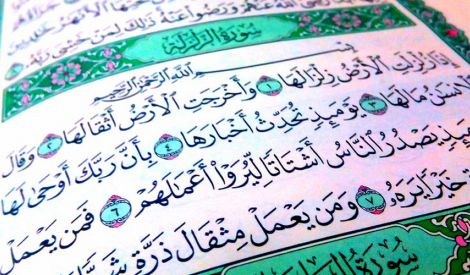 ٱللَّهُ عَنْهُمْ وَرَضُوا۟ عَنْهُ ذَٰلِكَ لِمَنْ خَشِىَ رَبَّهُۥ
سُورَةُ الزَّلْزَلَةِ
بِسْمِ ٱللَّهِ ٱلرَّحْمَٰنِ ٱلرَّحِيمِ
إِذَا زُلْزِلَتِ ٱلْأَرْضُ زِلْزَالَهَا ١ وَأَخْرَجَتِ ٱلْأَرْضُ أَثْقَالَهَا ٢ وَقَالَ
مَا لَهَا ٣ يَوْمَئِذٍ تُحَدِّثُ أَخْبَارَهَا ٤ بِأَنَّ رَبَّكَ أَوْحَىٰ لَهَا
يَصْدُرُ ٱلنَّاسُ أَشْتَاتًا لِّيُرَوْا۟ أَعْمَٰلَهُمْ ٦ فَمَن يَعْمَلْ
خَيْرًا يَرَهُۥ ٧ وَمَن يَعْمَلْ مِثْقَالَ ذَرَّةٍ
سُورَةُ